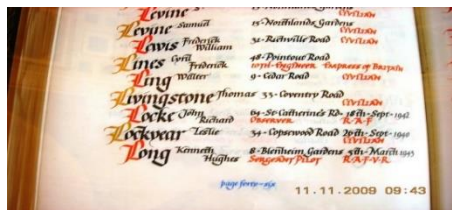 Levine S.
Levine Samuel 15-Northlands Gardens
CIVILIAN
Lewis Frederick William 32-Richville Road
CIVILIAN
Lines Cyril Frederick 48-Pointout Road
10TH-Engineer Empress of Britain
Ling Walter 9-Cedar Road
CIVILIAN
Livingstone Thomas 33-Coventry Road
CIVILIAN
Locke John Richard 64-St Catherine's Rd- 18th-Sept-1942
Observer R-A-F
Lockyear Leslie 34-Copsewood Road 26th-Sept-1940
CIVILIAN
Long Kenneth Hughes 8-Blenheim Gardens 5th-March 1945
Sergeant Pilot R-A-F-V-R
page forty-six
11.11.2009 09:43